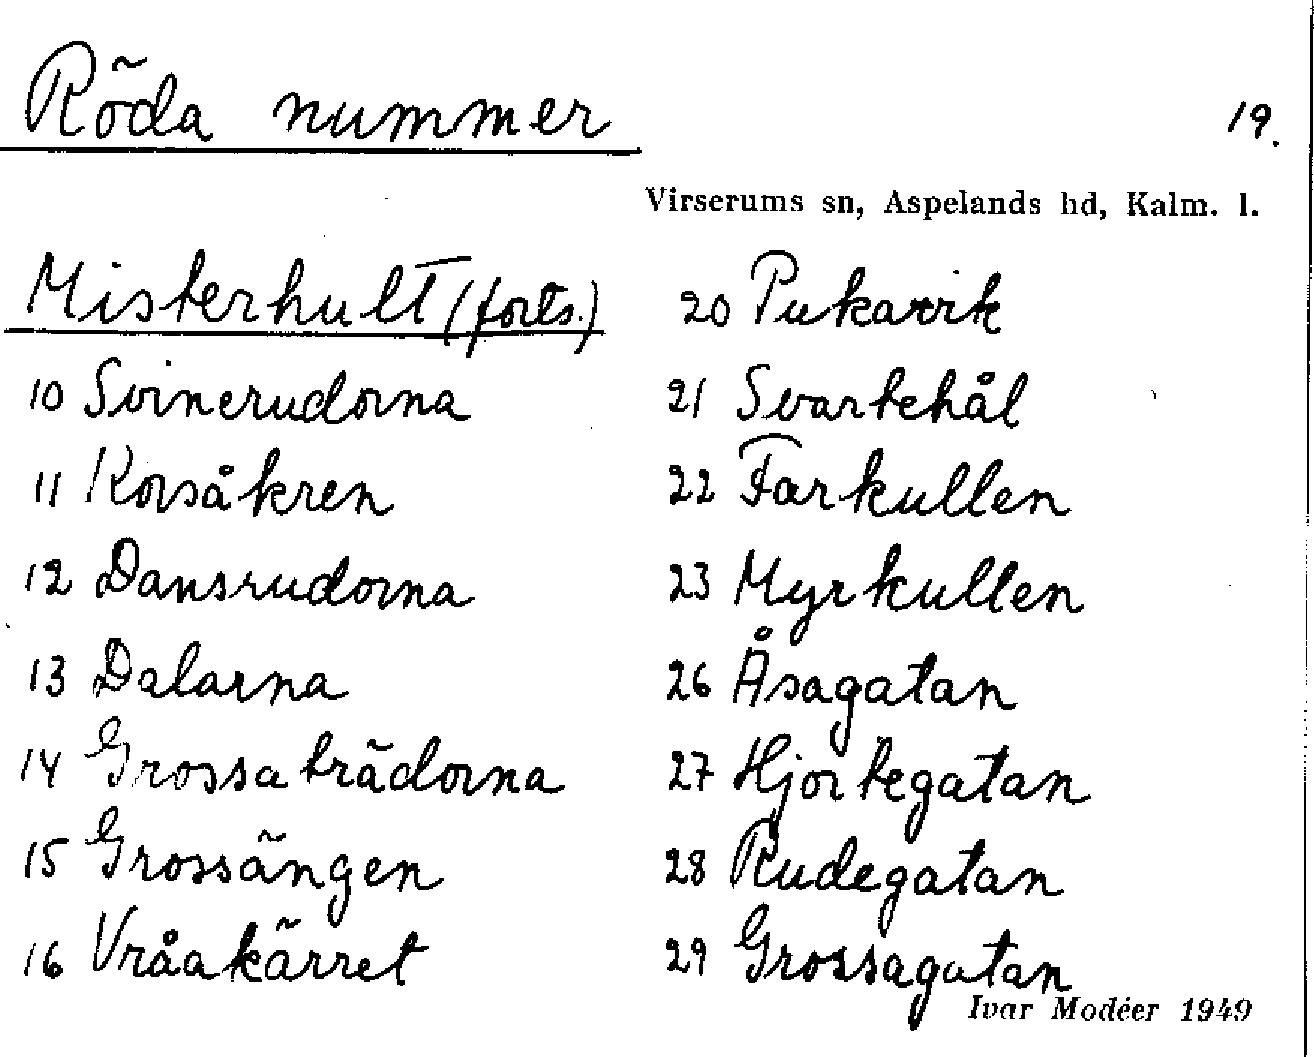 Röda nummer
19.
Virserums sn, Aspelands hd, Kalm. l.
Misterhult (forts.)
10 Svinerudorna
11 Korsåkren
12 Dansrudorna
13 Dalarna
14 Grossabrädorna
15 Grossängen
16 Vråakärret
20 Pukarvik
21 Svartehål
22 Farkullen
23 Myrkullen
26 Åsagatan
27 Hjortegatan
28 Rudegatan
29 Grossagatan
Ivar Modéer 1949